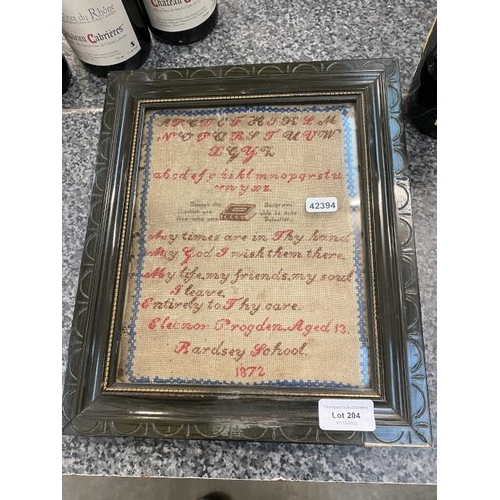 Côtes du Rhône
Cabrières
Château
A B C D E F G H I K L M
N O P Q R S T U V W
X Y Z
a b c d e f g h i k l m n o p q r s t u
v w y x z
42394
My times are in Thy hand
My God I wish them there,
My life, my friends, my soul
I leave,
Entirely to Thy care.
Eleanor Progden. Aged 13.
Bardsey School.
1872
Lot 204